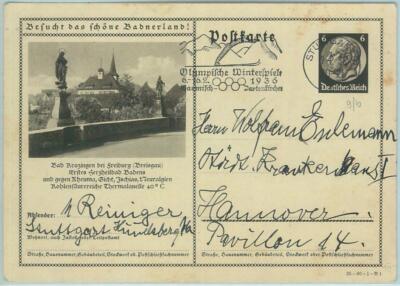 Besucht das schöne Badnerland!
Postkarte
Olympische Winterspiele
6.-16.2. 1936
Garmisch-Partenkirchen
STU
6 6
Deutsches Reich
Bad Krozingen bei Freiburg (Breisgau)
Erstes Herzheilbad Badens
und gegen Rheuma, Gicht, Ischias, Neuralgien
Kohlensäurereiche Thermalquelle 40° C
Absender: Reiniger
Stuttgart
Wohnort, auch Zustell- oder Leitpostamt
Straße, Hausnummer, Gebäudeteil, Stockwerk od. Postschließfachnummer
Herrn Wolfram
Städt. Krankenhaus I
Hannover
Pavillon 14.
Straße, Hausnummer, Gebäudeteil, Stockwerk oder Postschließfachnummer